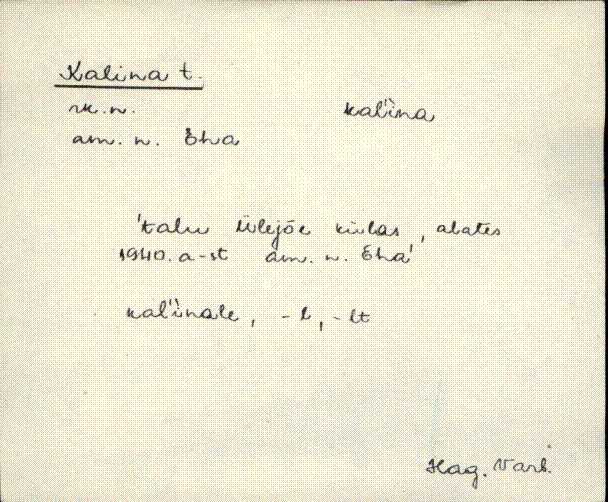 Kalina t.
rk. n. kal'ina
am. n. Eha
'talu Ülejõe külas, alates
1940. a-st am. n. Eha'
kal'inale, -l, -lt
Hag. Varb.